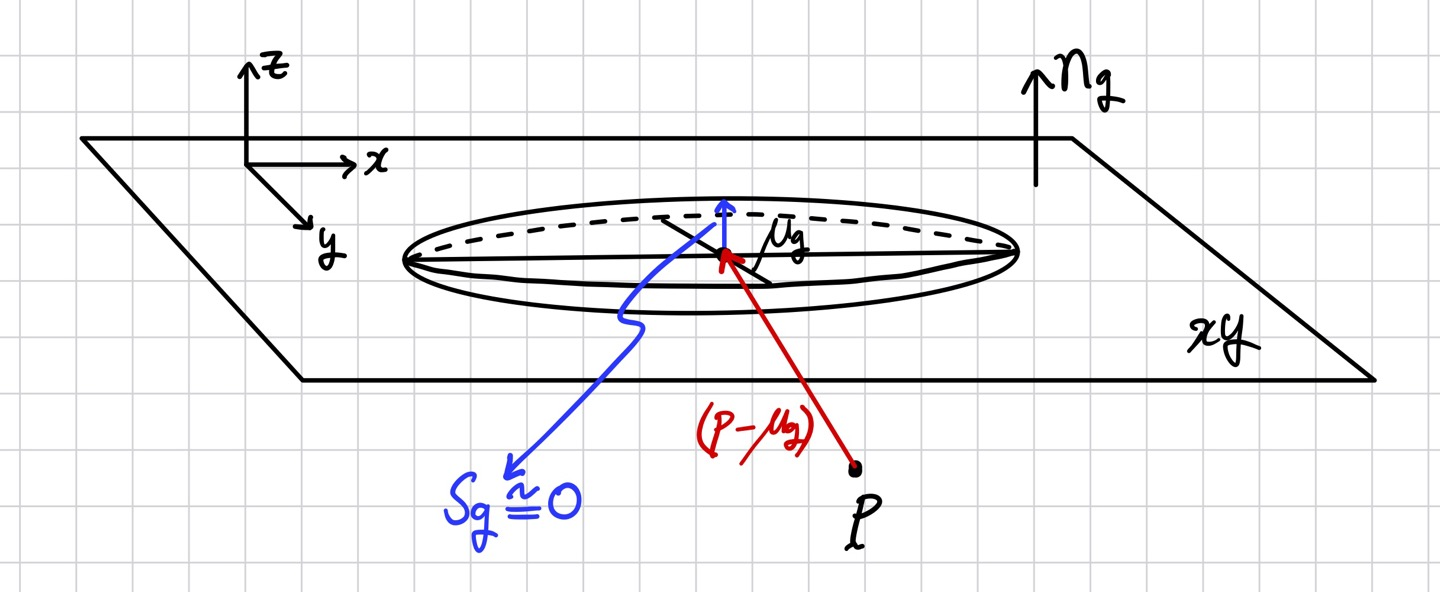 z
x
y
n_g
μ_g
xy
(P-μ_g)
S_g ≅ 0
P